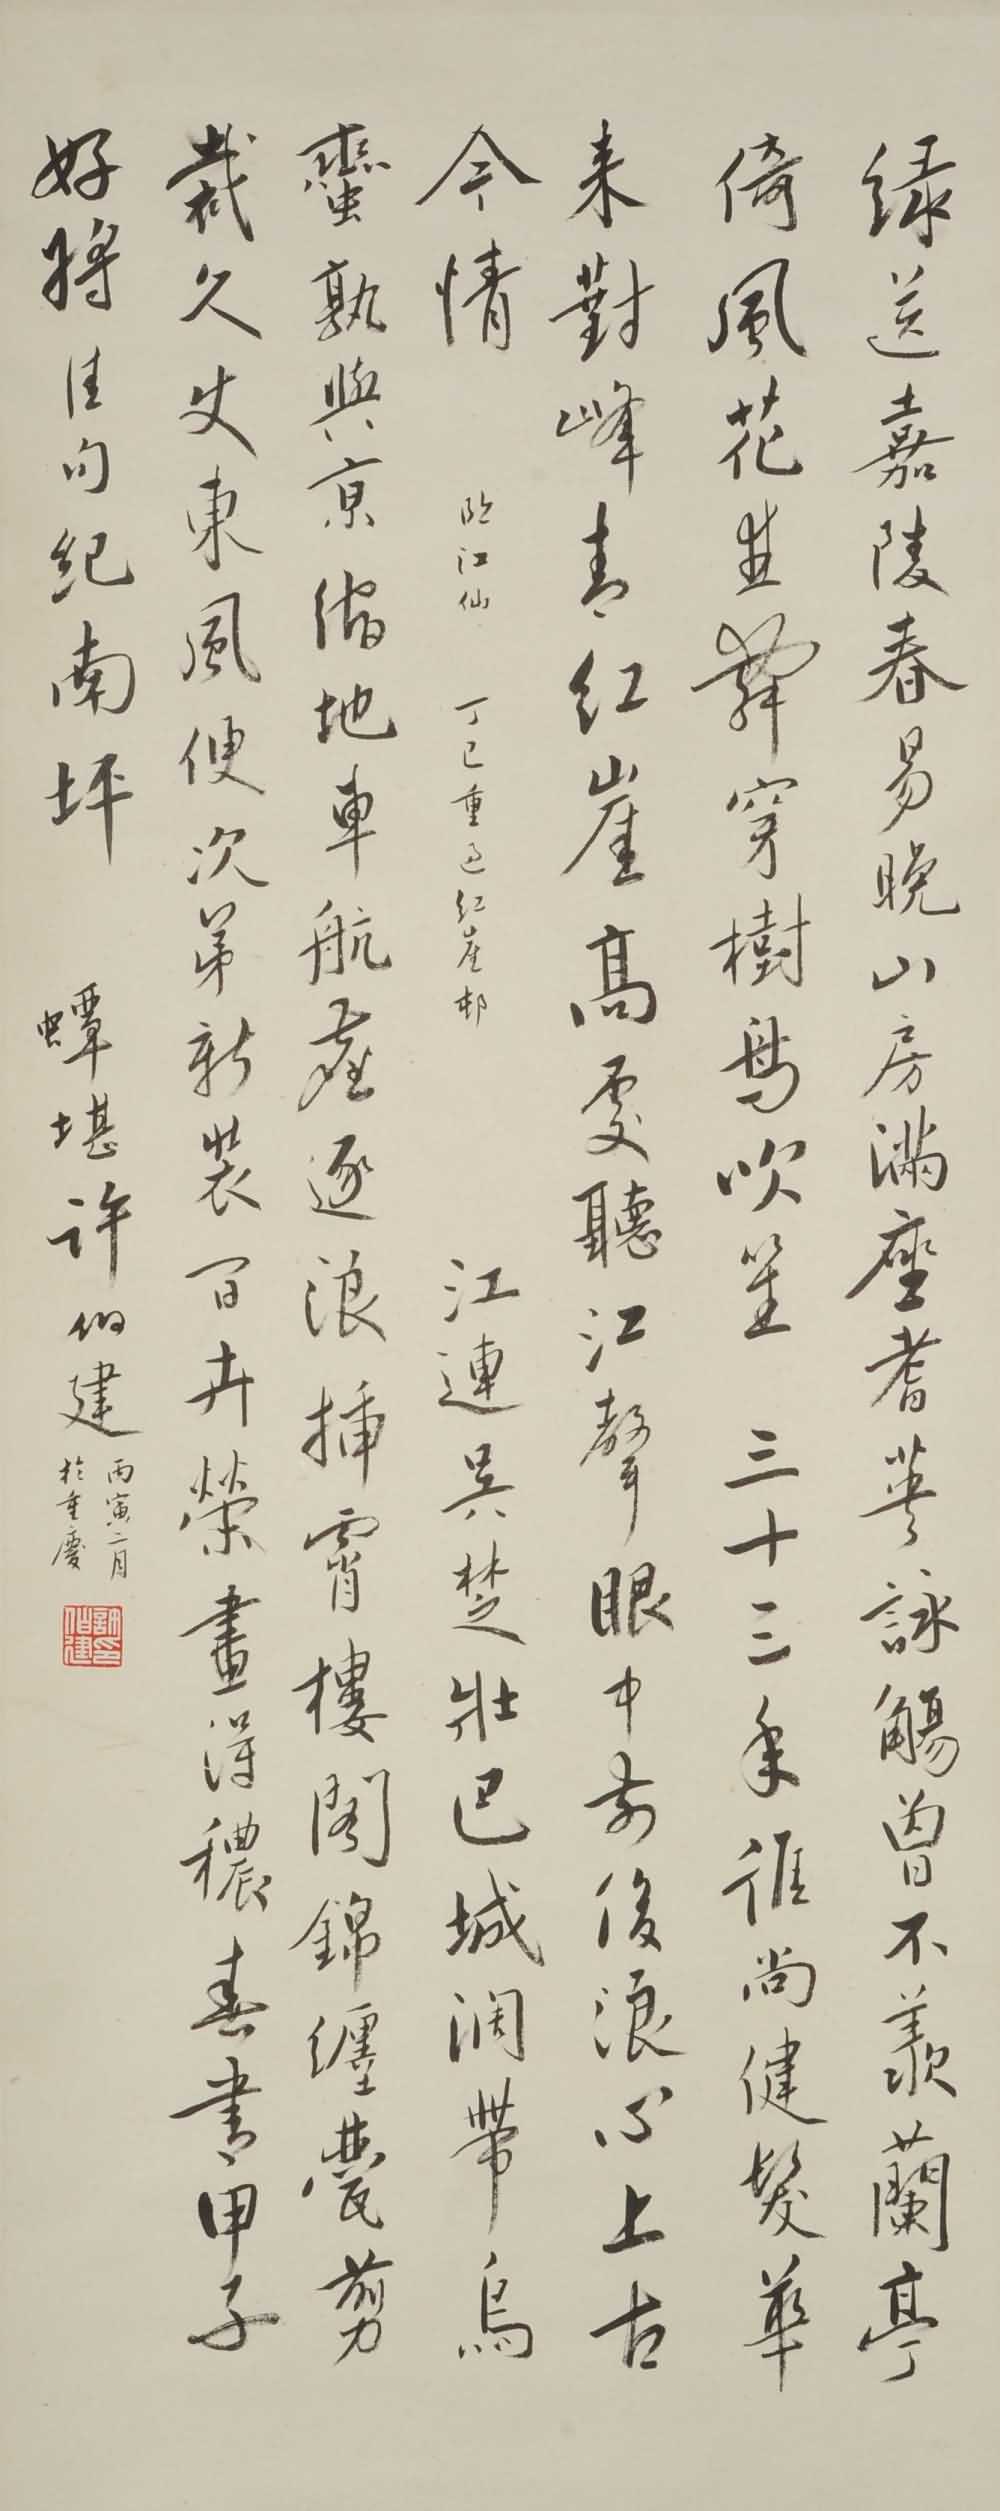 綠送嘉陵春易晚山房滿座耆英詠觴曾不羨蘭亭
倚風花生舞穿樹鳥吹笙 三十三年誰尚健髮華
來對峰青紅崖高處聽江聲眼中前後浪心上古
今情 臨江仙 丁巳重過紅崖邨 江連吳楚壯巴城濶帶烏
蠻孰與京縮地車航產逐浪插霄樓閣錦纏甍剪
裁久丈東風便次第新裝百卉榮畫得穠春書甲子
好將佳句紀南坪 蟫堪許伯建 丙寅二月
於重慶
許伯建印